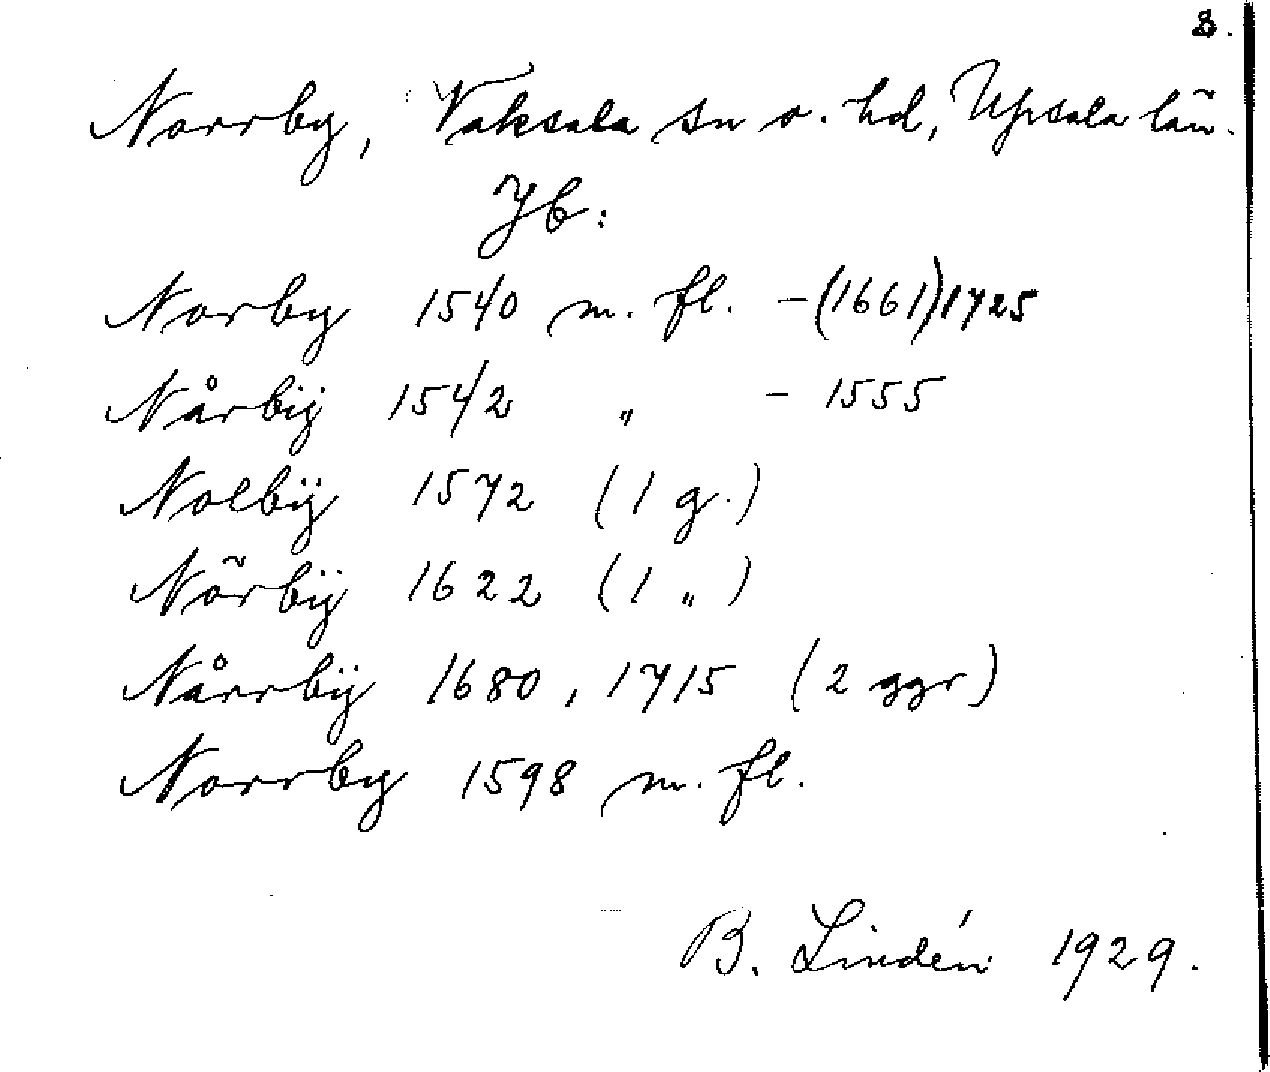 3.
Norrby, Vaksala sn o. hd, Upsala län.
Jb:
Norby 1540 m. fl. - (1661) 1725
Nårbÿ 1542 „ - 1555
Nolbÿ 1572 (1 g.)
Nörbÿ 1622 (1 „)
Nårrbÿ 1680, 1715 (2 ggr)
Norrby 1598 m. fl.
B. Lindén 1929.